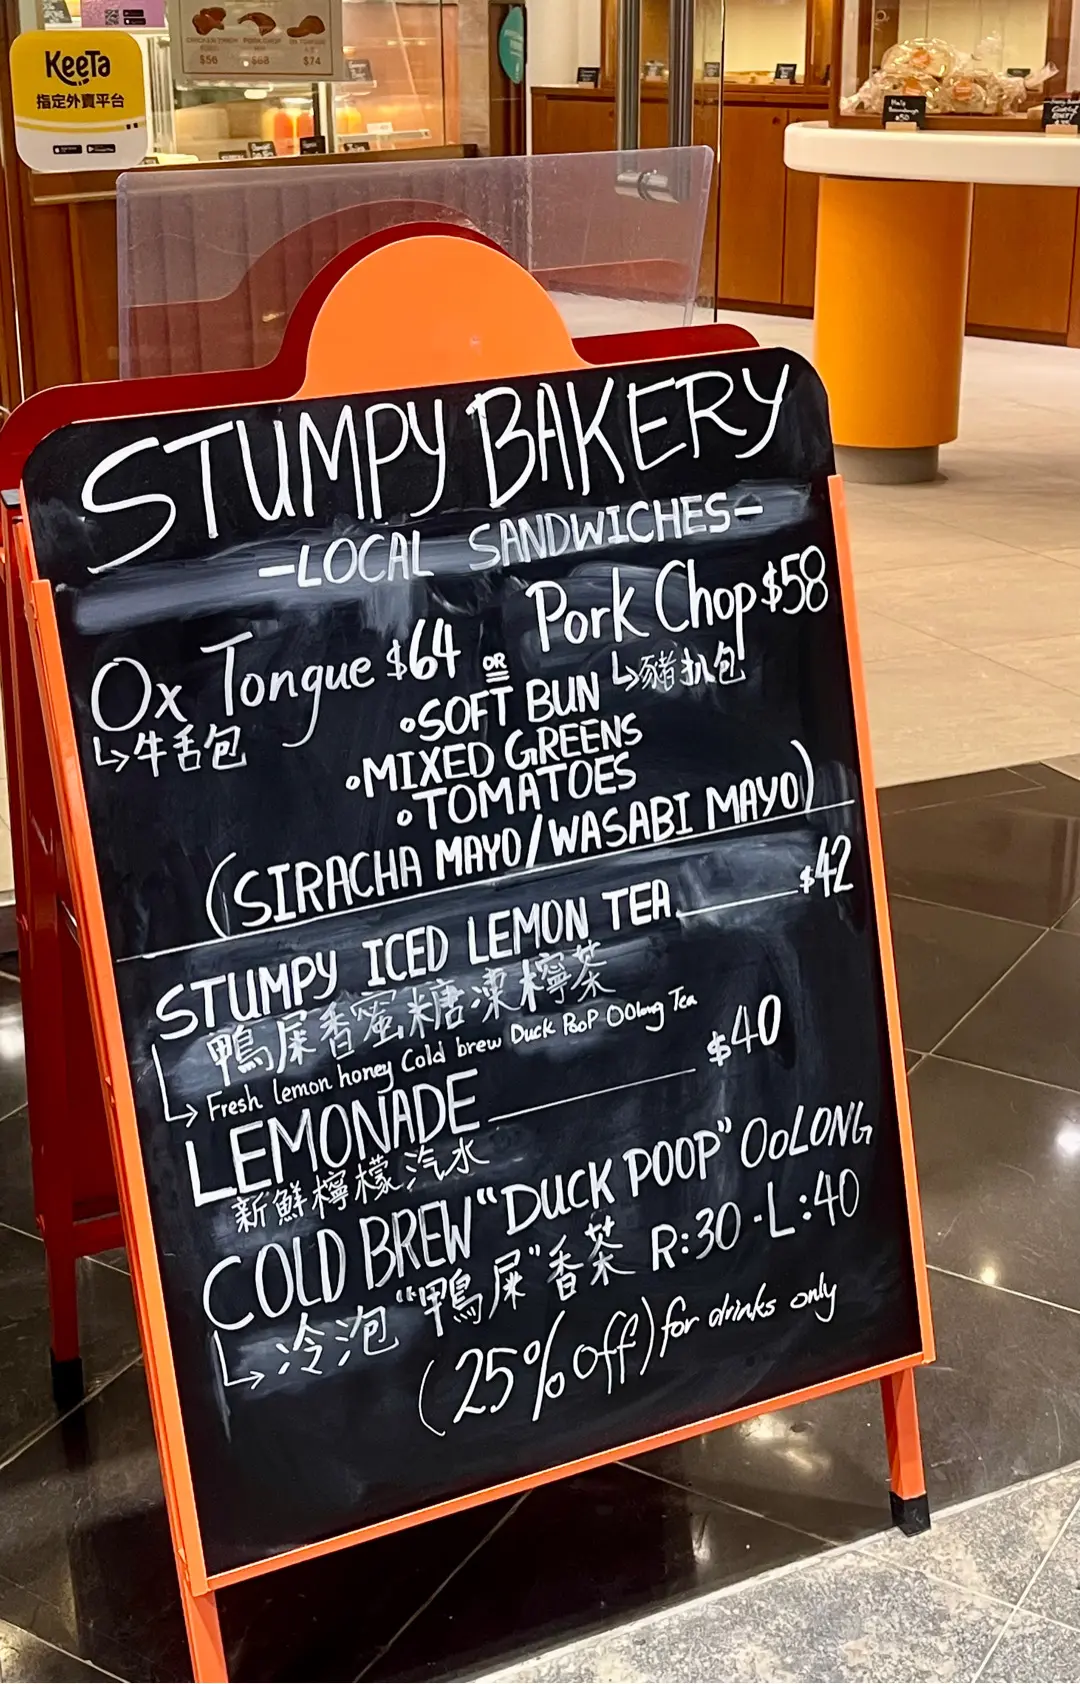 KeeTa
指定外賣平台
$56
$68
$74
STUMPY BAKERY
-LOCAL SANDWICHES-
Ox Tongue $64
牛舌包
OR
Pork Chop $58
豬扒包
SOFT BUN
MIXED GREENS
TOMATOES
(SIRACHA MAYO/WASABI MAYO)
STUMPY ICED LEMON TEA $42
鴨屎香蜜糖凍檸茶
Fresh lemon honey Cold brew Duck Poop Oolong Tea
LEMONADE $40
新鮮檸檬汽水
COLD BREW "DUCK POOP" OOLONG
冷泡"鴨屎"香茶 R:30-L:40
(25% off) for drinks only